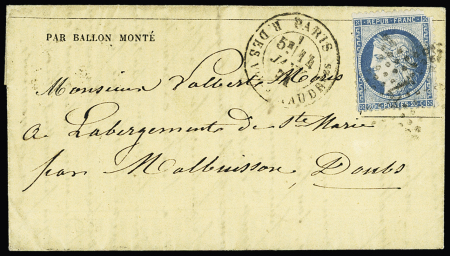 PAR BALLON MONTÉ
PARIS
R. DES V
AUDR
5E
REPUB FRANC
POSTES
Monsieur Valbert Moris
a Labergement de Ste Marie
par Malbuisson, Doubs